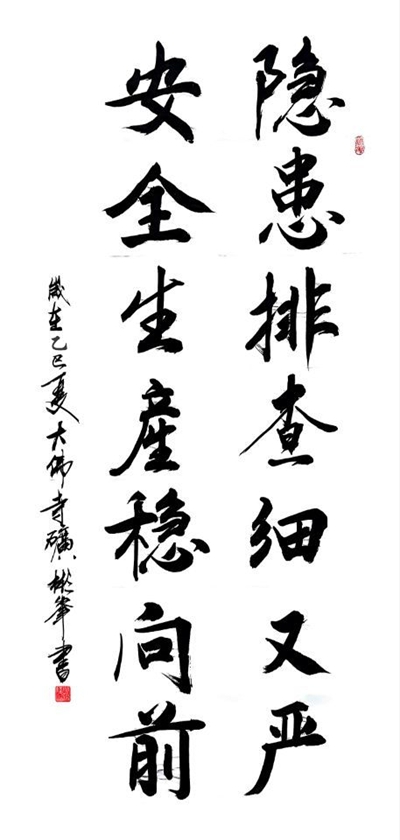 隐患排查细又严
安全生產稳向前
歲在乙巳夏大佛寺礦彬峯書